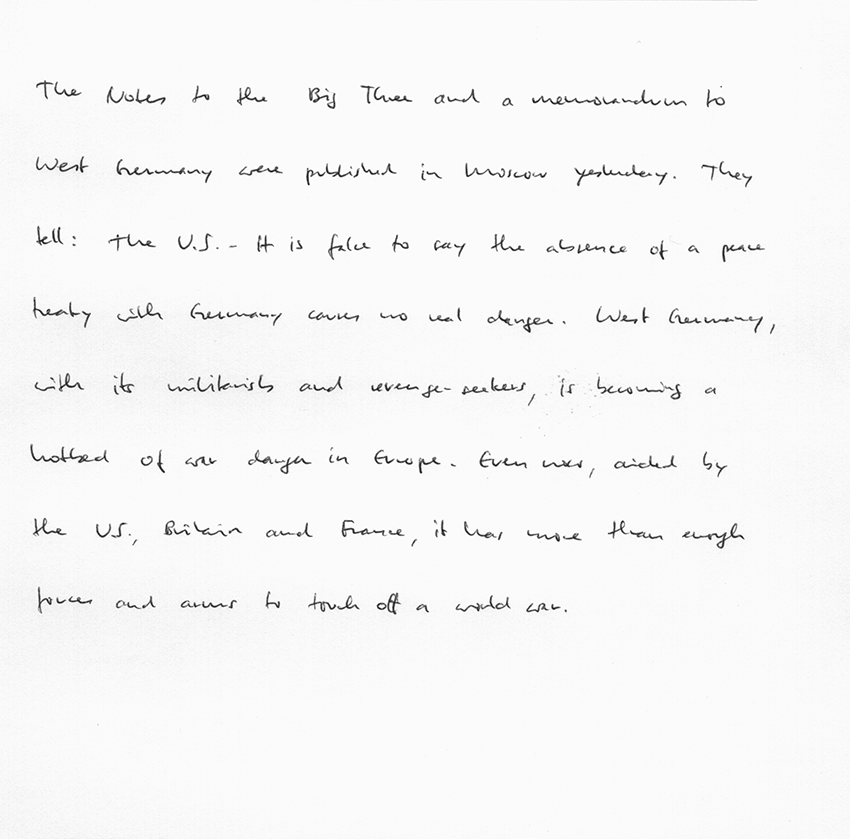 The Notes to the Big Three and a memorandum to
West Germany were published in Moscow yesterday. They
tell: The U.S. - It is false to say the absence of a peace
treaty with Germany causes no real danger. West Germany,
with its militarists and revenge-seekers, is becoming a
hotbed of war danger in Europe. Even now, aided by
the U.S., Britain and France, it has more than enough
forces and arms to touch off a world war.